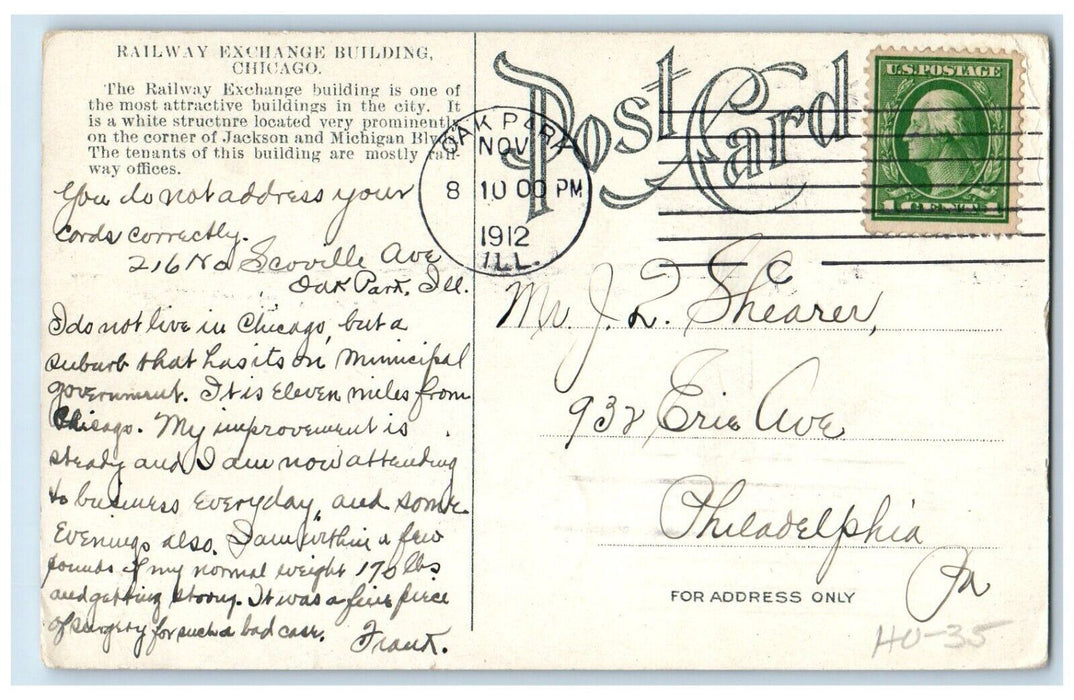 RAILWAY EXCHANGE BUILDING,
CHICAGO.
The Railway Exchange building is one of
the most attractive buildings in the city. It
is a white structnre located very prominently
on the corner of Jackson and Michigan
The tenants of this building are mostly rail-
way offices.
You do not address your
cards correctly.
216 No Scoville Ave
Oak Park, Ill.
I do not live in Chicago, but a
suburb that has its on Municipal
government. It is eleven miles from
Chicago. My improvement is
steady and I am now attending
to business everyday, and some
Evenings also. I am within a few
pounds of my normal weight 170 lbs.
and getting strong. It was a fine piece
of surgery for such a bad case. Frank.
Post Card
OAK PARK
NOV
8 10 00 PM
1912
ILL.
U.S. POSTAGE
1 CENT 1
C
Mr. J. L. Shearer,
932 Erie Ave
Philadelphia
Pa
FOR ADDRESS ONLY
HO-35